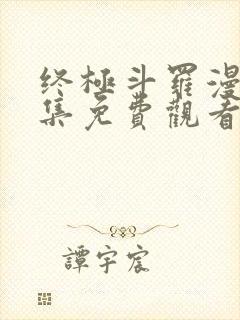 終極斗羅漫
集免費觀看
譚宇宸